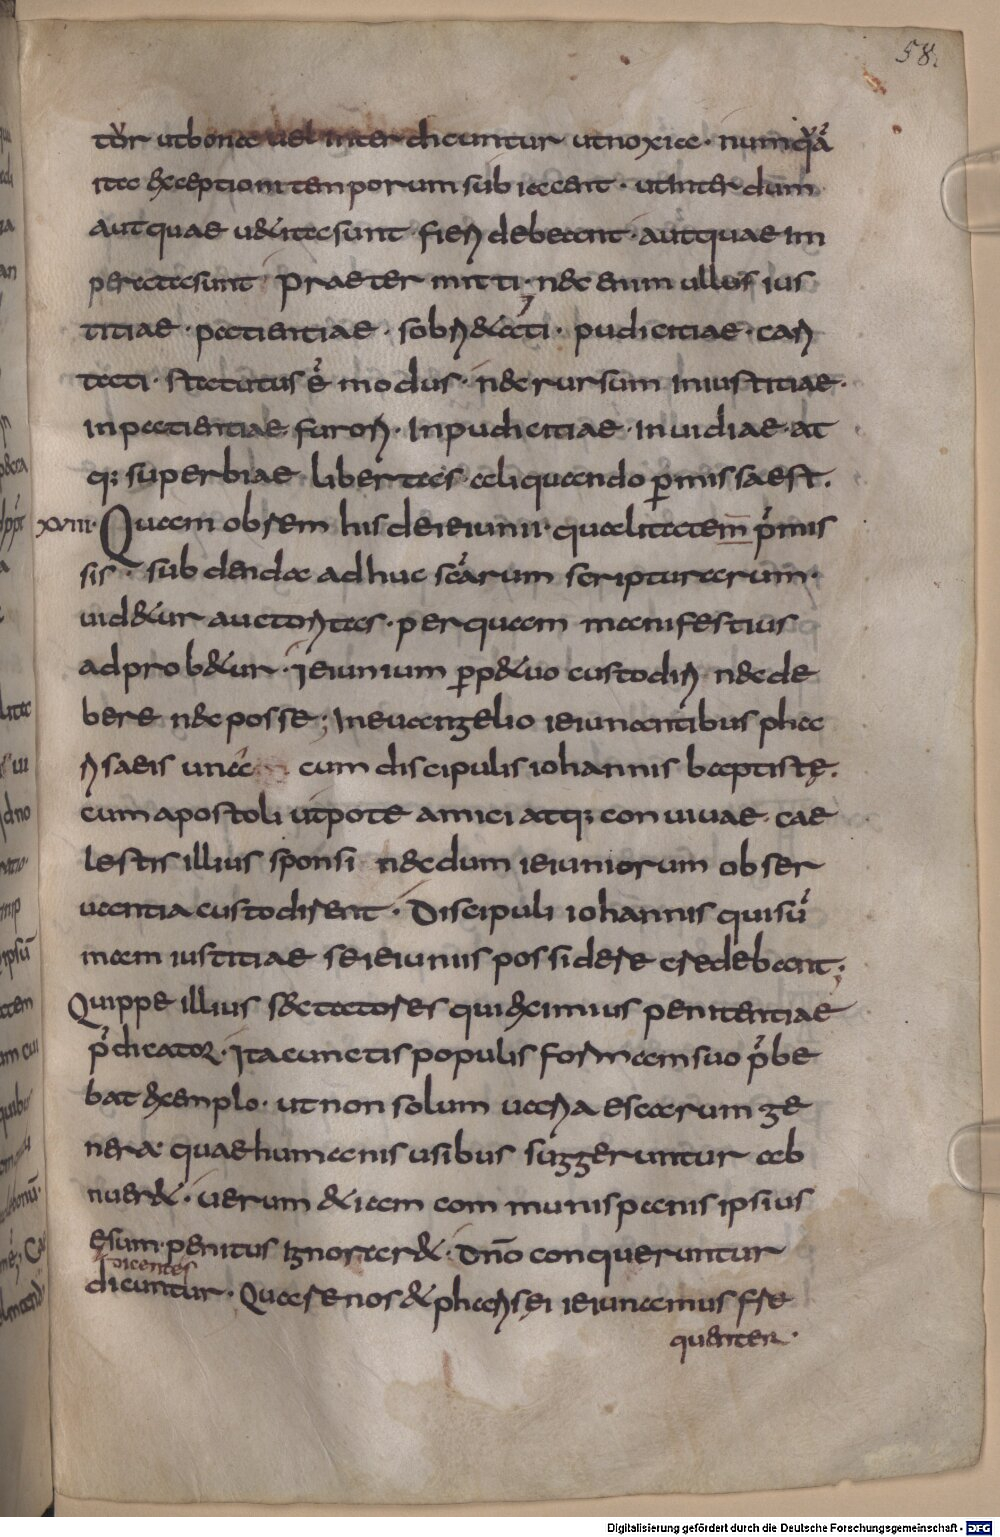 58.
tur ut bona vel interdicuntur ut noxia · numquā
ita exceptioni temporum subiaceant · ut interdum
aut quae vetita sunt fieri debeant · aut quae im
perata sunt praetermitti · nec enim ullus ius
titiae · patientiae · sobrietati · pudicitiae · cari
tati · statutus ē modus · nec rursum iniustitiae ·
inpatientiae · furori · inpudicitiae · invidiae · at
q; superbiae libertas aliquando p̄missa est .
xviii · Quam ob rem his de ieiunii · qualitatem p̄mis
sis · subdenda adhuc scārum scripturarum ·
videtur auctoritas · per quam manifestius
adprobetur · ieiunium ꝑpetuo custodiri nec de
bere nec posse ; in evangelio ieiunantibus pha
risaeis una cum discipulis iohannis baptistę .
cum apostoli utpote amici atq; convivae cae
lestis illius sponsi necdum ieiuniorum obser
vantia custodirent · Discipuli iohannis qui sū
mam iustitiae se ieiuniis possidere credebant ;
Quippe illius sectatores qui eximius penitentiae
p̄dicator · ita cunctis populis formam suo p̄be
bat exemplo · ut non solum varia escarum ge
nera quae humanis usibus suggeruntur ab
nueret · verum etiam communis panis ipsius
esum penitus ignoraret · dnō conqueruntur
dicentes
dicuntur · Quare nos et pharisei ieiunamus fre
quenter ·
Digitalisierung gefördert durch die Deutsche Forschungsgemeinschaft - DFG